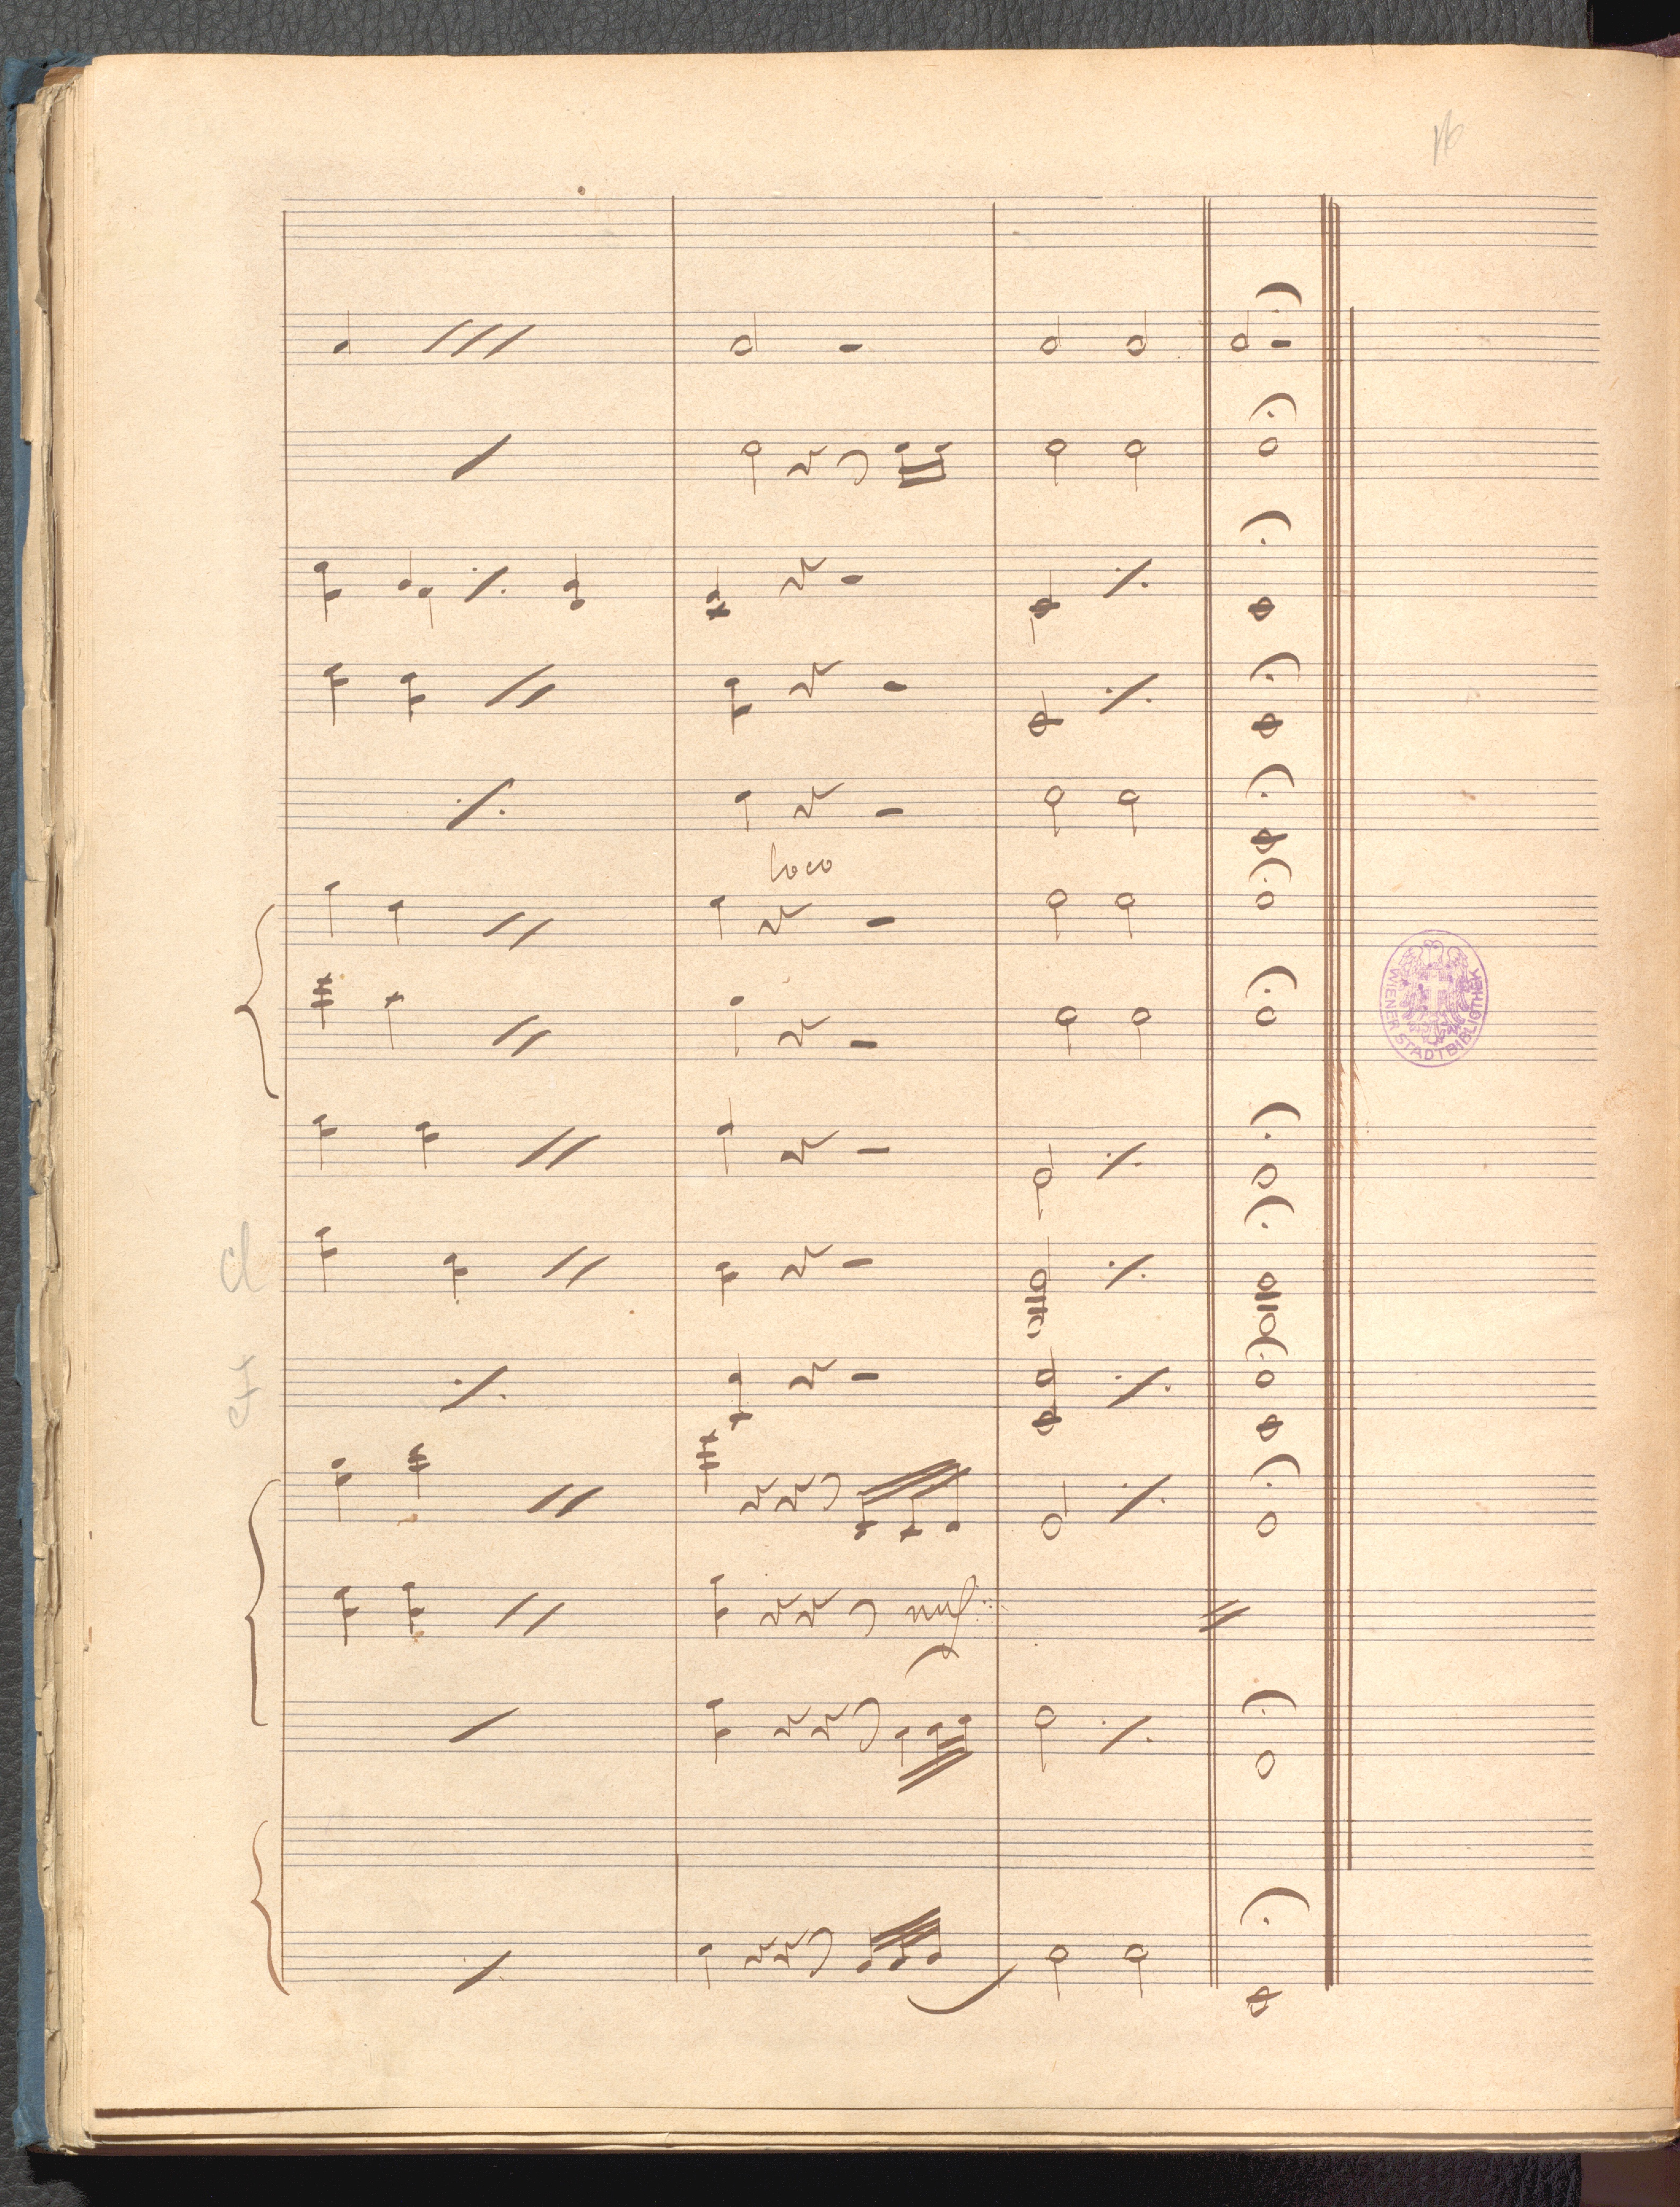 16
loco
unis
Cl
WIENER STADTBIBLIOTHEK